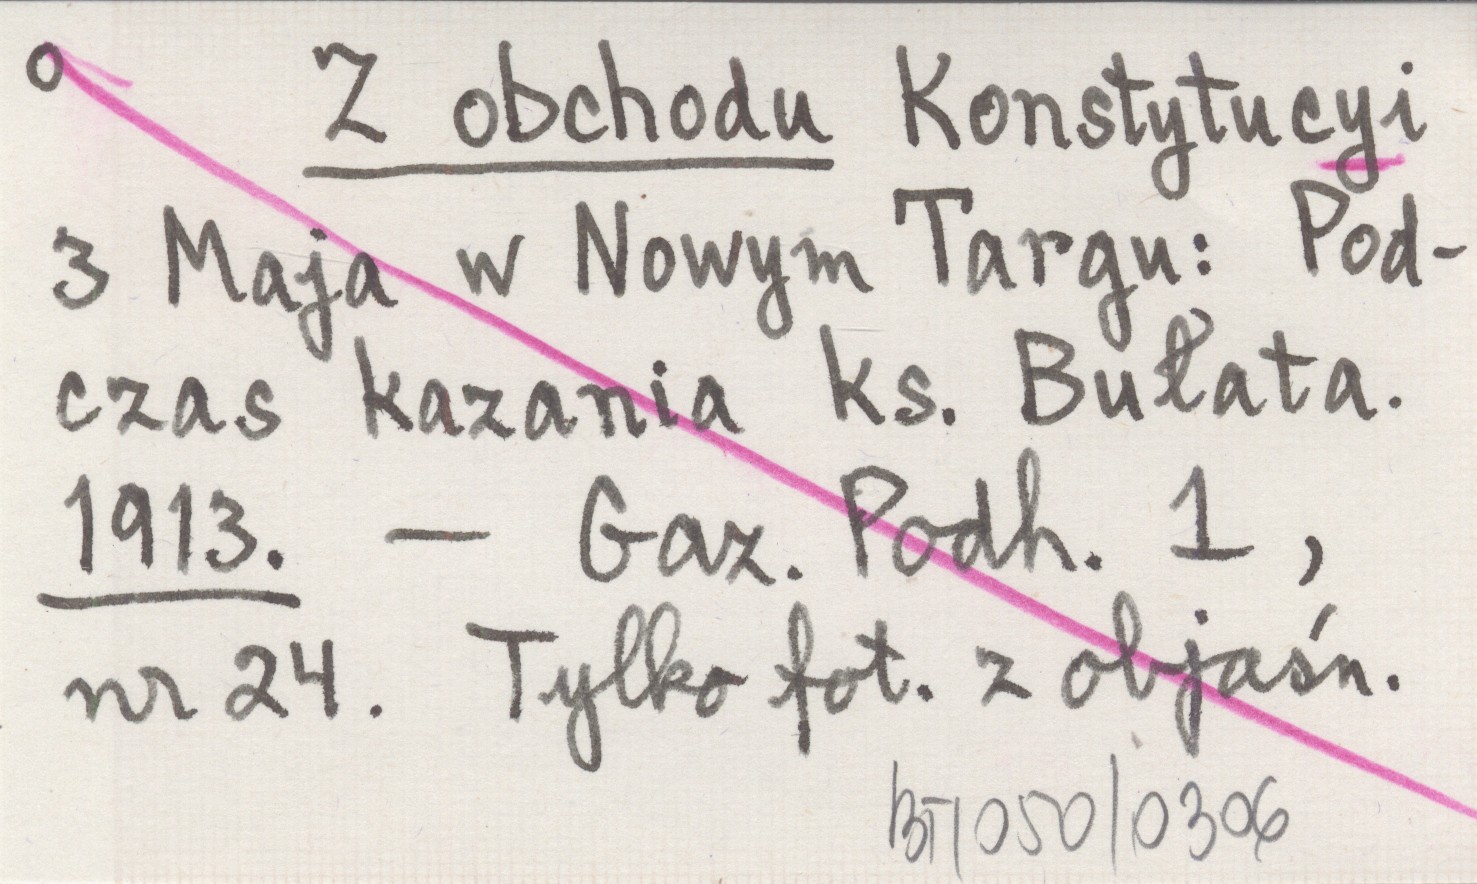 o Z obchodu Konstytucyi
3 Maja w Nowym Targu: Pod-
czas kazania ks. Bułata.
1913. — Gaz. Podh. 1,
nr 24. Tylko fot. z objaśn.
BT/050/0306